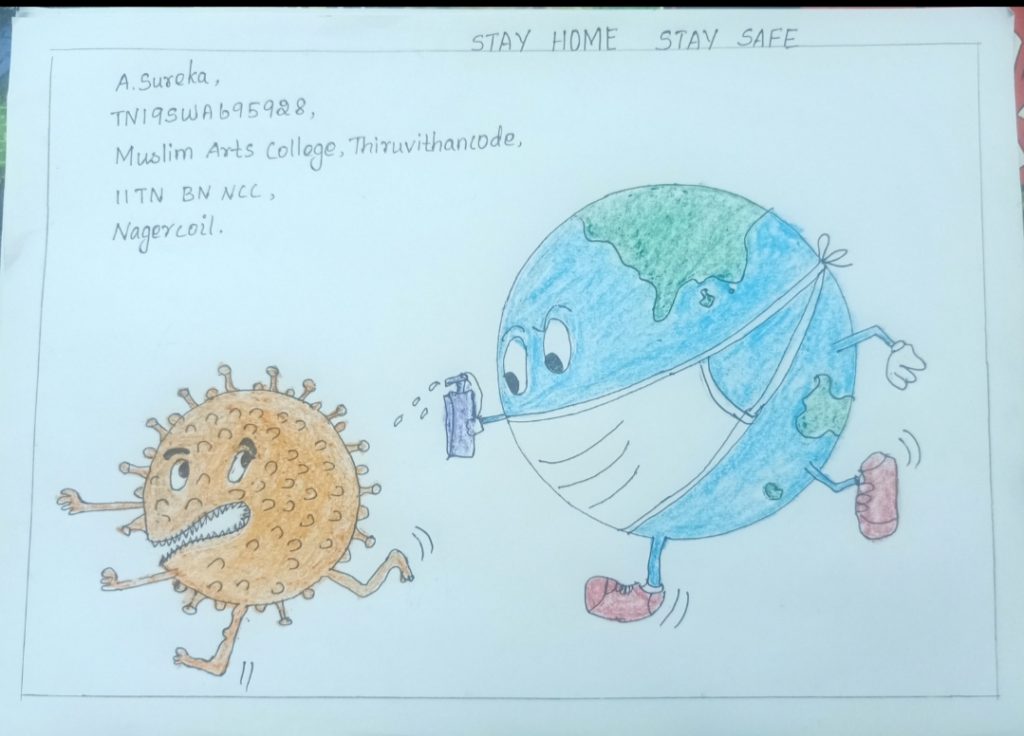 STAY HOME STAY SAFE
A. Sureka,
TN19SWA695928,
Muslim Arts College, Thiruvithancode,
11TN BN NCC,
Nagercoil.